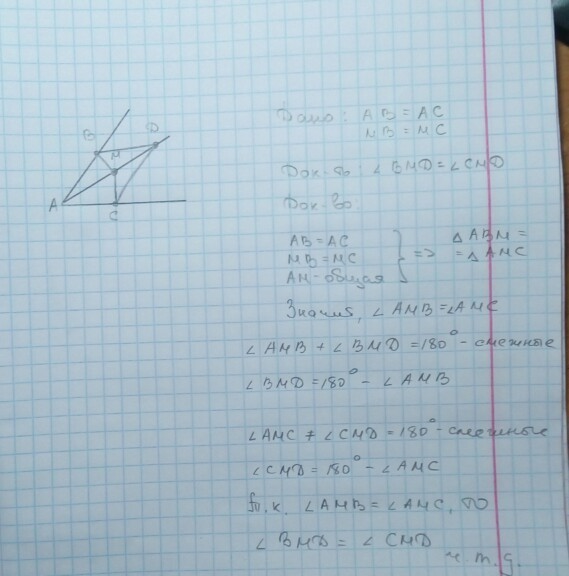 B
D
M
A
C
Дано: AB = AC
MB = MC
Док-ть: ∠BMD = ∠CMD
Док-во
AB = AC
MB = MC
AM - общая
} => △ABM =
= △AMC
Значит, ∠AMB = ∠AMC
∠AMB + ∠BMD = 180° - смежные
∠BMD = 180° - ∠AMB
∠AMC + ∠CMD = 180° - смежные
∠CMD = 180° - ∠AMC
т.к. ∠AMB = ∠AMC, то
∠BMD = ∠CMD
ч.т.д.